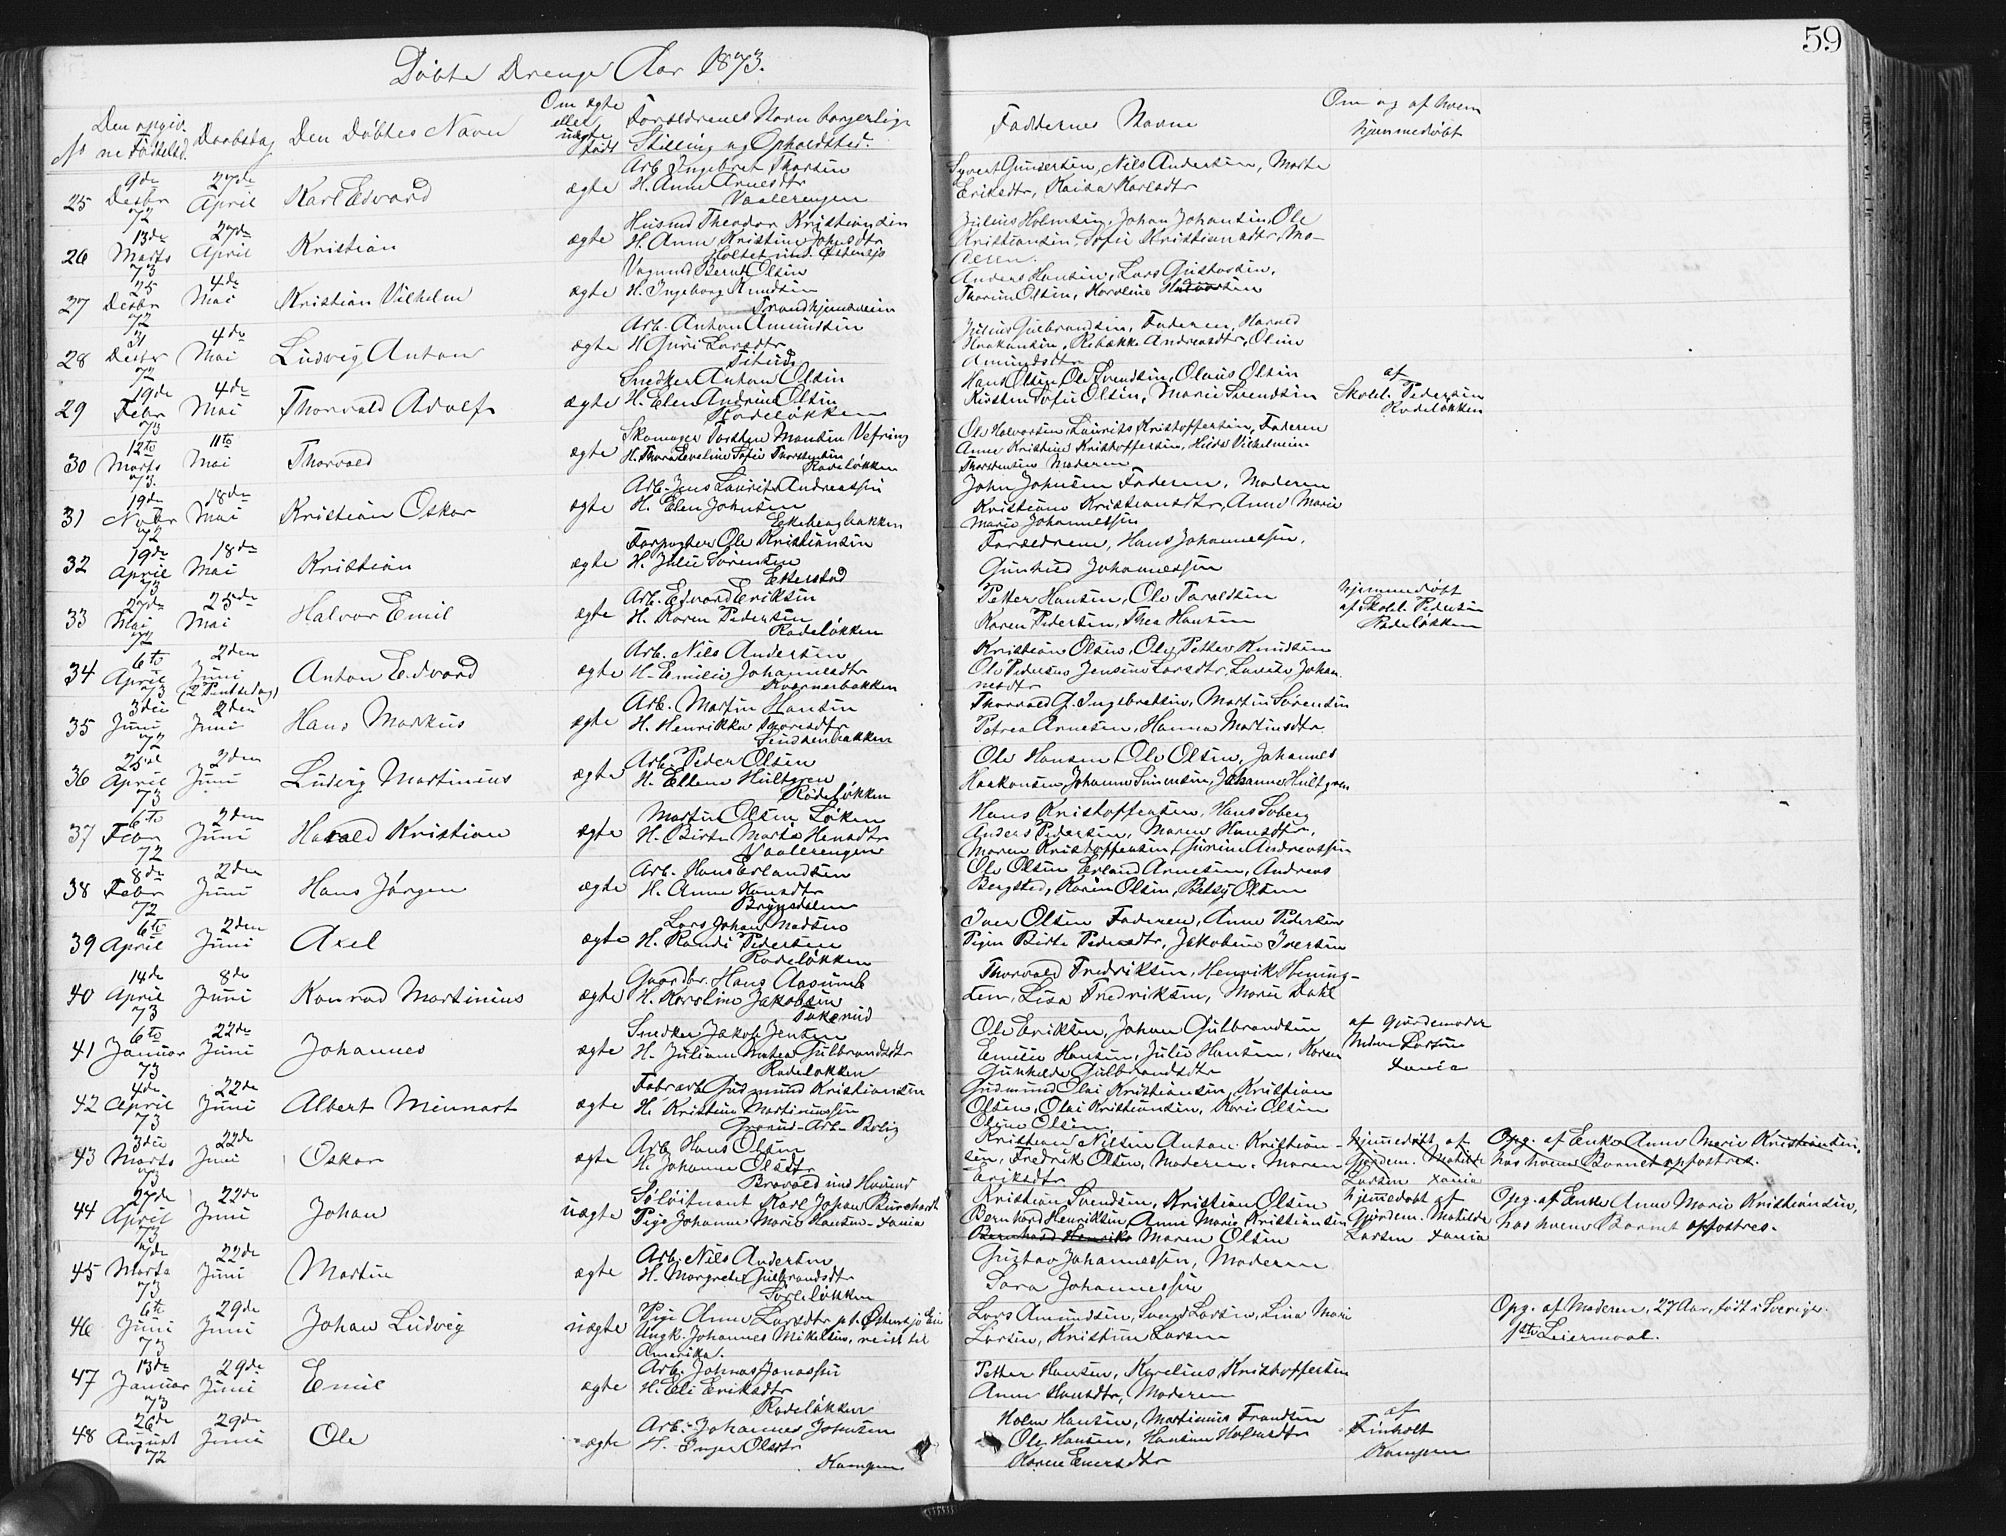 59
Döbte Drenge Aar 1873.
No
Den opgiv.
ne Födselsd.
Daabsdag
Den Döbtes Navn
Om ægte
eller
uægte
födt
Forældrenes Navn borgerlige
Stilling og Opholdsted.
Faddernes Navne
Om og af hvem
hjemmedöbt
25 9de Desbr 72 27de April Karl Edvard ægte
Arb. Ingebret Thorsen
H. Anne Arnesdtr
Vaalerengen
Syvert Gundersen, Nils Andersen, Marte
Eriksdtr, Kaisa Karlsdtr
26 13de Marts 73 27de April Kristian ægte
Husmd Theodor Kristiansen
H. Anne Kristine Johnsdtr
Holtet und. Østensjö
Julius Holmsen, Johan Johansen, Ole
Kristiansen, Sofie Kristiansdtr, Mo-
deren.
27 25 Desbr 72 4de Mai Kristian Vilhelm ægte
Vognmd Bernt Olsen
H. Ingeborg Knudsen
Trondhjemsveien
Anders Hansen, Lars Gustavsen,
Thorine Olsen, Karoline Halvorsen
28 31 Desbr 72 4de Mai Ludvig Anton ægte
Arb. Anton Amundsen
H. Guri Larsdtr
Julius Gulbrandsen, Faderen, Harald
Haakonsen, Rebækka Andreasdtr, Oline
Amundsdtr
29 19de Febr 73 4de Mai Thorvald Adolf ægte
Snedker Anton Olsen
H. Elen Andrine Olsen
Rodelökken
Hans Olsen, Ole Svendsen, Olaus Olsen
Kirsten Sofie Olsen, Marie Svendsen
af
Skolel. Pedersen
Rodelökken
30 12te Marts 73. 11te Mai Thorvald ægte
Skomager Torsten Monsen Vefring
H. Thora Eveline Sofie Thorstensen
Rodelökken
Ole Halvorsen, Laurits Kristoffersen, Faderen
Anne Kristine Kristoffersen, Hilda Vilhelmine
Thorstensen Moderen
31 19de Nvbr 72 18de Mai Kristian Oskar ægte
Arb. Jens Laurits Andreassen
H. Elen Johnsen
Ekebergbakken
John Johnsen Faderen, Moderen
Kristiane Kristiansdtr, Anne Marie
Marie Johannessen
32 19de April 73 18de Mai Kristian ægte
Forpagter Ole Kristiansen
H. Julie Sørensen
Etterstad
Forældrene, Hans Johannessen,
Gunhild Johannessen
33 27de Mai 72 25de Mai Halvor Emil ægte
Arb. Edvard Eriksen
H. Karen Pedersen
Rodelökken
Petter Hansen, Ole Taraldsen
Karen Pedersen, Thea Hansen
hjemmedöbt
af Skolel. Pedersen
Rodelökken
34 6te April 73 2den Juni (2 Pintsedag) Anton Edvard ægte
Arb. Nils Andersen
H. Emilie Johannesdtr
Kværnerbakken
Kristian Olsen, Ole Petter Knudsen
Ole Pedersen Jensine Larsdtr, Lovise Johan
nesdtr
35 3die Juni 72 2den Juni Hans Markus ægte
Arb. Martin Hansen
H. Henrikke Thoresdtr
Thorvald G. Ingebretsen, Martin Sörensen
Petrea Arnesen, Hanna Martinsdtr
36 25de April 73 2den Juni Ludvig Martinius ægte
Arb. Peder Olsen
H. Ellen Hultgren
Rodelökken
Ole Hansen, Ole Olsen, Johannes
Haakonsen, Johanne Simensen, Johanne Hultgren
37 6te Febr 72 2den Juni Harald Kristian ægte
Martin Olsen Löken
H. Birte Marie Hansdtr
Vaalerengen
Hans Kristoffersen, Hans Soberg
Anders Pedersen, Maren Hansdtr,
Maren Kristoffersen, Gurine Andreassen
38 8de Febr 72 2den Juni Hans Jörgen ægte
Arb. Hans Erlandsen
H. Anne Hansdtr
Brynsdalen
Ole Olsen, Erland Arnesen, Andreas
Bergsted, Karen Olsen, Betsy Olsen
39 6te April 2den Juni Axel ægte
Lars Johan Madsen
H. Randi Pedersen
Rodelökken
Iver Olsen Faderen, Anne Pedersen
Pigen Birte Pedersdtr, Jakobine Iversen
40 14de April 73 8de Juni Konrad Martinius ægte
Gaardbr. Hans Aasund
H. Karoline Jakobsen
Thorvald Fredriksen, Henrik Hening-
sen, Lisa Fredriksen, Marie Dahl
41 6te Januar 73 22de Juni Johannes ægte
Snedker Jakob Jensen
H. Juliane Matea Gulbrandsdtr
Rodelökken
Ole Eriksen, Johan Gulbrandsen
Emilie Hansen, Julie Hansen, Karen
Gunhilde Gulbrandsdtr
af Gjordemoder
Larsen
Xania
42 4de April 73 22de Juni Albert Minnart ægte
Fabrarb. Gudmund Kristiansen
H. Kristine Martiniussen
Grønd-Arb- Bolig
Gudmund Olai Kristiansen, Kristian
Olsen, Olai Kristiansen, Karis Olsen
Oline Olsen.
43 3die Marts 73 22de Juni Oskar ægte
Arb Hans Olsen
H. Johanne Olsdtr
Bravold und Hovind
Kristian Nilsen Anton Kristian-
sen, Fredrik Olsen, Moderen, Maren
Eriksdtr
hjemmedöbt af
Gjordem. Matilde
Larsen Xania
Opg. af Enke Anne Marie Kristiansen,
hos hvem Barnet opfostres.
44 27de April 73 22de Juni Johan uægte
Söløitnant Karl Johan Burchardt
Pige Johanne Marie Hansen - Xania
Kristian Svendsen, Kristian Olsen
Bernhard Henriksen, Anne Marie Kristiansen
Bernhard Henriks Maren Olsen
hjemmedöbt af
Gjordem. Matilde
Larsen Xania
Opg. af Enke Anne Marie Kristiansen,
hos hvem Barnet opfostres.
45 7de Marts 73 22de Juni Martin ægte
Arb. Nils Andersen
H. Margrete Gulbrandsdtr
Gustav Johannessen, Moderen
Sara Johannessen
46 6te Juni 73 29de Juni Johan Ludvig uægte
Pige Anne Larsdtr p.t. Østensjö Eie
Ungk. Johannes Mikelsen, reist til
Amerika.
Lars Amundsen, Svend Larsen, Lina Marie
Larsen, Kristine Larsen
Opg. af Moderen, 27 Aar, födt i Sverige.
1ste Leiermaal.
47 13de Januar 73 29de Juni Emil ægte
Arb. Johnas Jonassen
H. Eli Eriksdtr
Rodelökken
Petter Hansen, Karelius Kristoffersen
Anne Hansdtr, Moderen
48 26de August 72 29de Juni Ole ægte
Arb. Johannes Johnsen
H. Inger Olsdtr
Kampen
Holm Hansen, Martinius Frandsen
Ole Hansen, Hansine Halvorsdtr
Karen Einersdtr
af
Finholt
Kampen